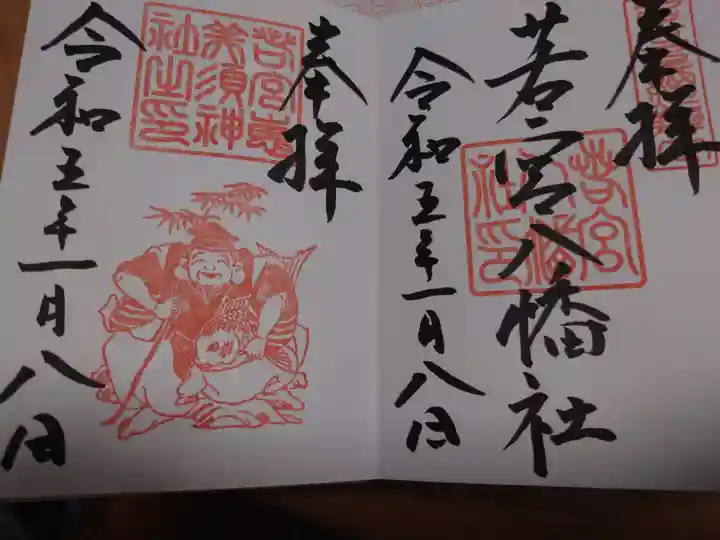 奉拝
若宮八幡社
令和五年一月八日
若宮八幡社印
奉拝
若宮恵美須神社之印
令和五年一月八日